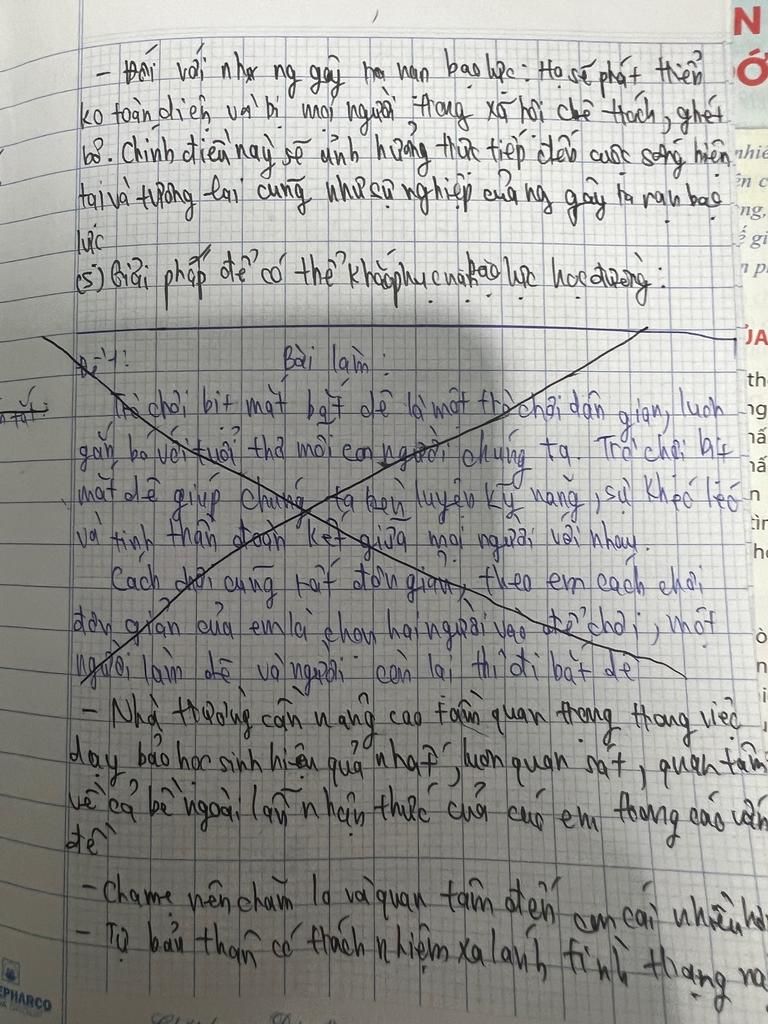 - Đối với như ng gây ra nạn bạo lực: Họ sẽ phát triển
ko toàn diện và bị mọi người trong xã hội chê trách, ghét
bỏ. Chính điều này sẽ ảnh hưởng trực tiếp đến cuộc sống hiện
tại và tương lai cũng như sự nghiệp của ng gây ra nạn bạo
lực
(5) Giải pháp để có thể khắc phục nạn bạo lực học đường:
Đề 1: Bài làm:
Trò chơi bịt mắt bắt dê là một trò chơi dân gian, luôn
gắn bó với tuổi thơ mỗi con người chúng ta. Trò chơi bịt
mắt dê giúp chúng ta rèn luyện kỹ năng, sự khéo léo
và tinh thần đoàn kết giữa mọi người với nhau.
Cách chơi cũng rất đơn giản, theo em cách chơi
đơn giản của em là chọn hai người vào để chơi, một
người làm dê và người còn lại thì đi bắt dê
- Nhà trường cần nâng cao tầm quan trọng trong việc
dạy bảo học sinh hiệu quả nhất, luôn quan sát, quan tâm
về cả bề ngoài lẫn nhận thức của các em trong các vấn
đề
- Cha mẹ nên chăm lo và quan tâm đến con cái nhiều
- Tự bản thân có trách nhiệm xa lánh tình trạng
EPHARCO
N
Ớ